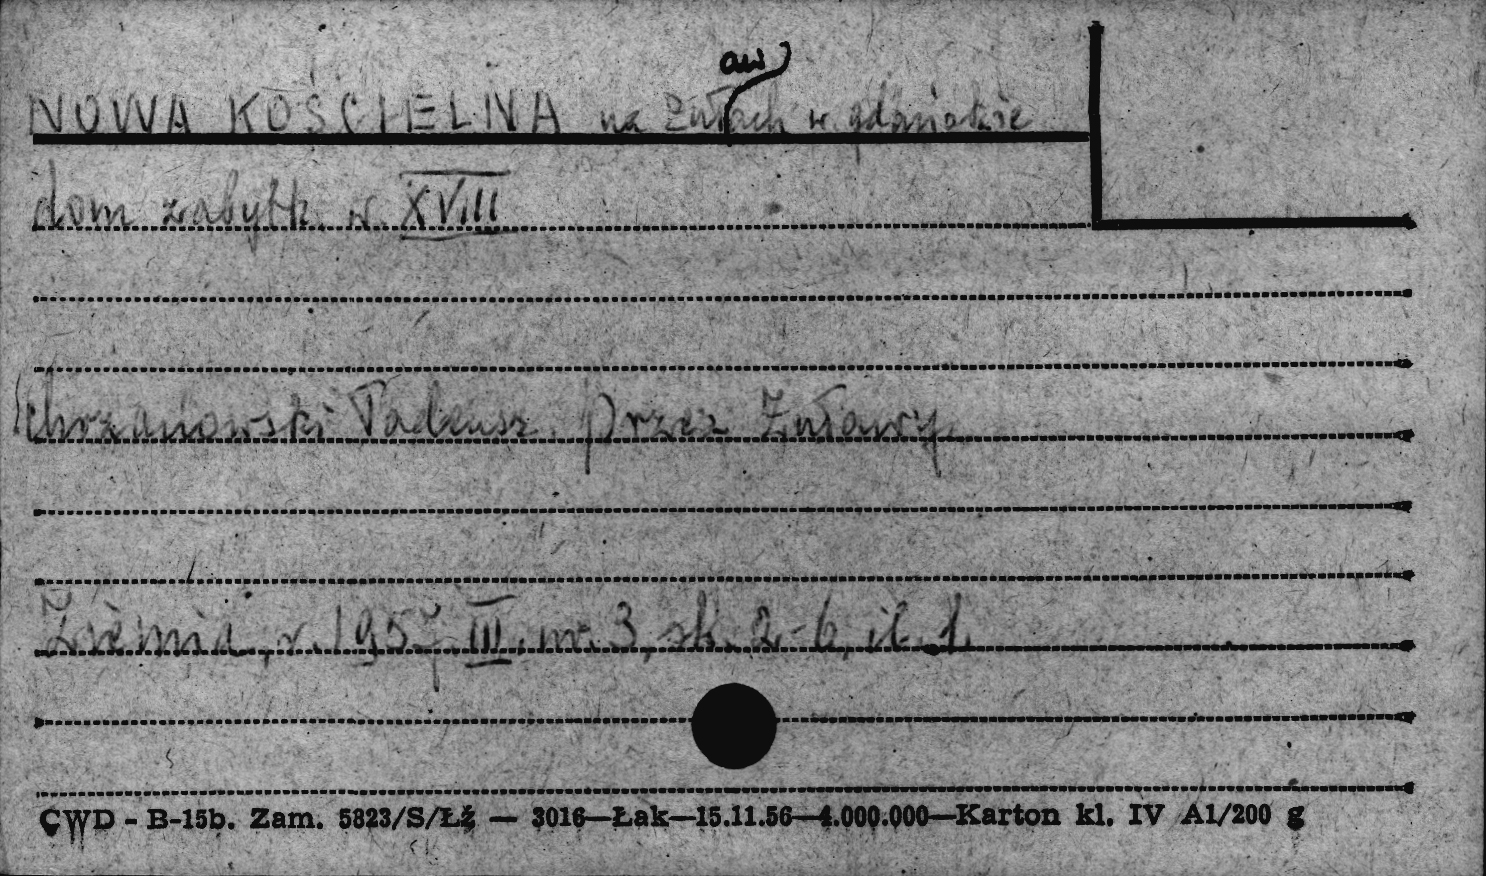 aw
NOWA KOŚCIELNA na Żułach w. gdańskie
dom zabytk. w. XVIII
Chrzanowski Tadeusz. Przez Żuławy.
Ziemia, r. 1957. III. nr. 3, sk. 2-6, il. 1.
CWD - B-15b. Zam. 5823/S/Łż — 3016—Łak—15.11.56—4.000.000—Karton kl. IV A1/200 g